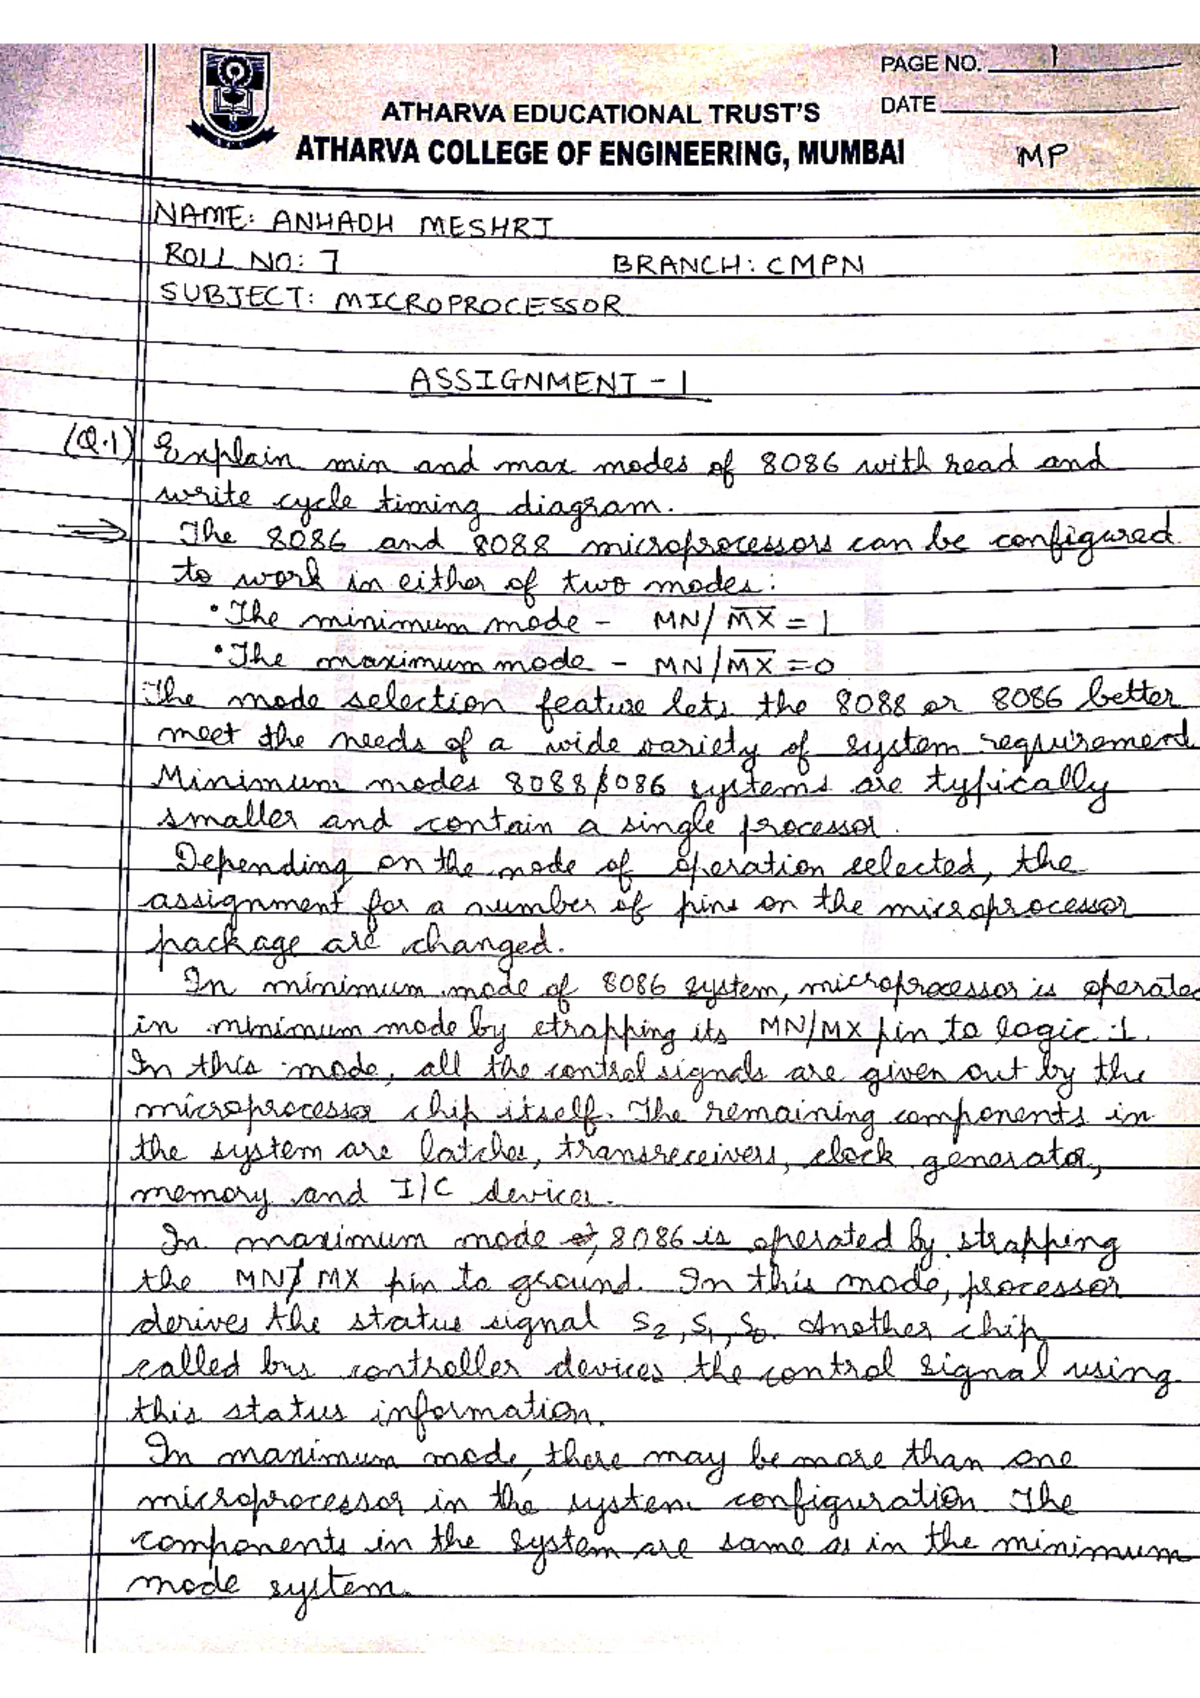 PAGE NO. 1
DATE
ATHARVA EDUCATIONAL TRUST'S
ATHARVA COLLEGE OF ENGINEERING, MUMBAI
MP
NAME: ANHADH MESHRI
ROLL NO: 7 BRANCH: CMPN
SUBJECT: MICROPROCESSOR
ASSIGNMENT - 1
(Q.1) Explain min and max modes of 8086 with read and
write cycle timing diagram.
⇒ The 8086 and 8088 microprocessors can be configured
to work in either of two modes:
• The minimum mode - MN/M̅X̅ = 1
• The maximum mode - MN/M̅X̅ = 0
The mode selection feature lets the 8088 or 8086 better
meet the needs of a wide variety of system requirement
Minimum modes 8088/8086 systems are typically
smaller and contain a single processor.
Depending on the mode of operation selected, the
assignment for a number of pins on the microprocessor
package are changed.
In minimum mode of 8086 system, microprocessor is operated
in minimum mode by strapping its MN/MX pin to logic 1.
In this mode, all the control signals are given out by the
microprocessor chip itself. The remaining components in
the system are latches, transreceivers, clock generator,
memory and I/C devices.
In maximum mode, 8086 is operated by strapping
the MN/MX pin to ground. In this mode, processor
derives the status signal S2, S1, S0. Another chip
called bus controller devices the control signal using
this status information.
In maximum mode, there may be more than one
microprocessor in the system configuration. The
components in the system are same as in the minimum
mode system.